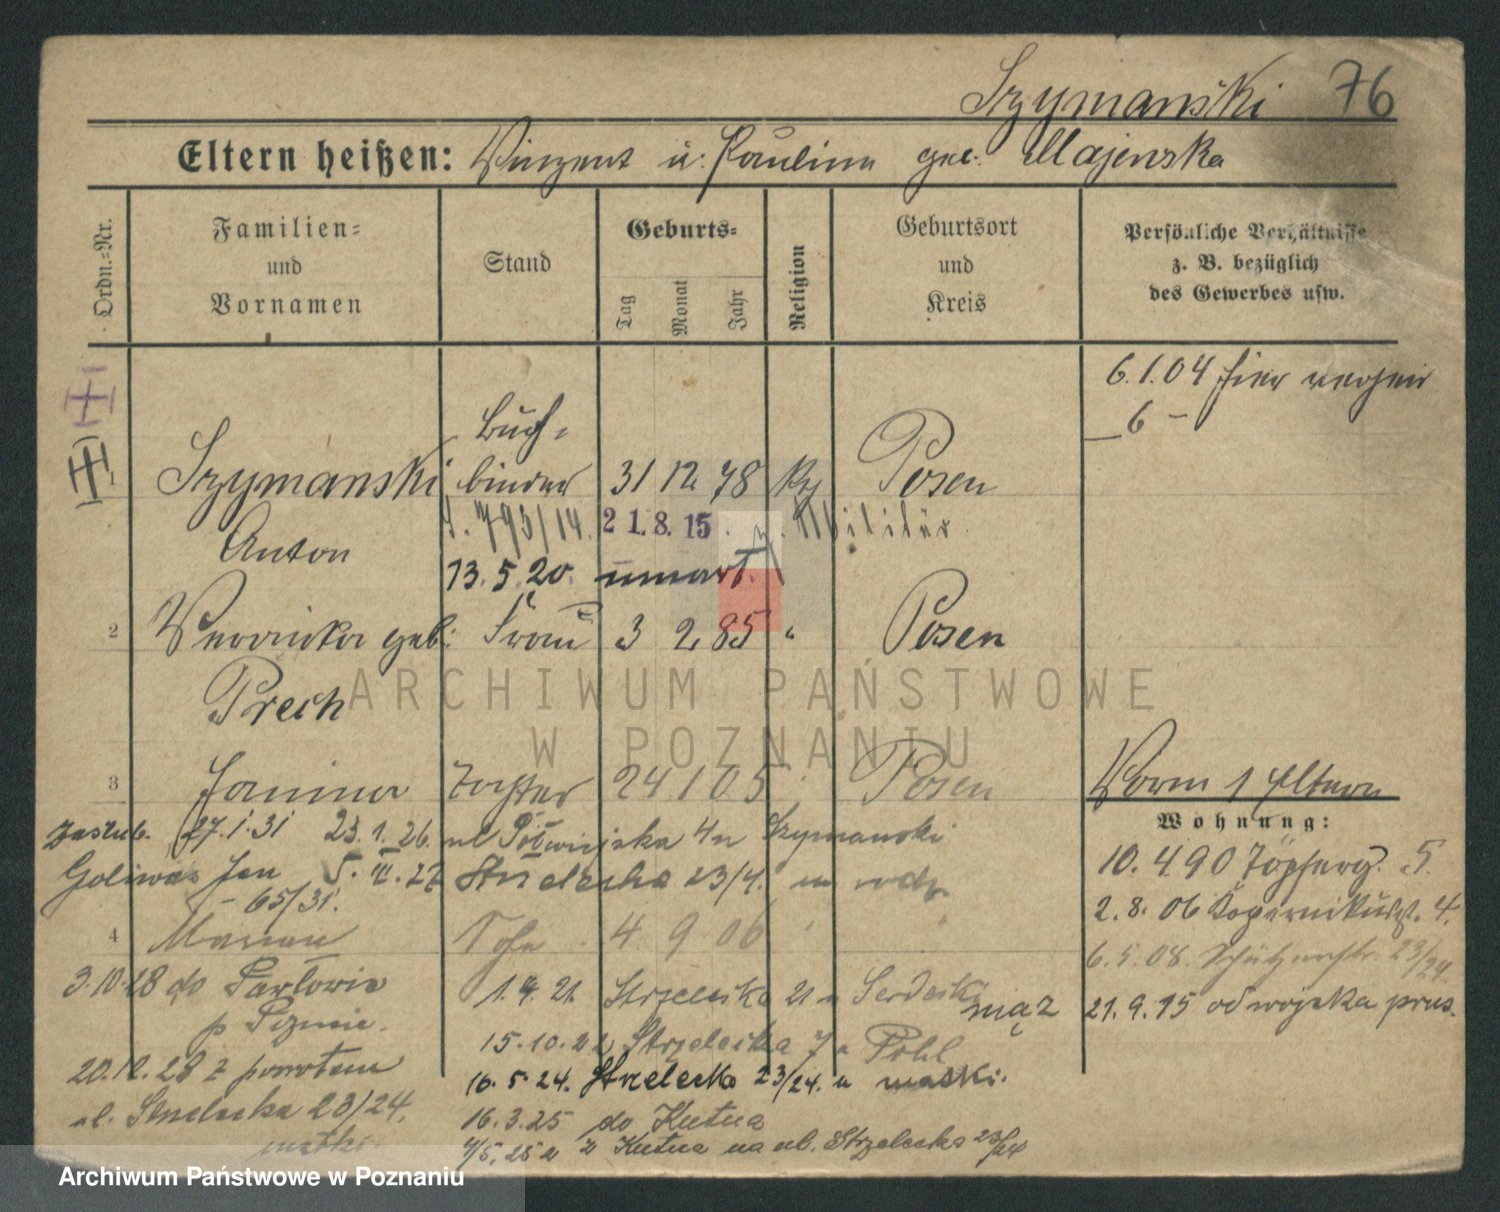 Szymański 76
Eltern heißen: Vinzent u. Paulina geb. Majewska
Ordn.-Nr.
Familien=
und
Vornamen
Stand
Geburts=
Tag
Monat
Jahr
Religion
Geburtsort
und
Kreis
Persönliche Verhältnisse
z. B. bezüglich
des Gewerbes usw.
6.1.04 hier
6 –
Szymanski
Anton
Buch-
binder
31 12 78
Posen
J. 793/14. 21.8.15. Militär
13.5.20.
2 Veronika geb.
Prech
Frau 3 2 85 " Posen
3 Janina Tochter 24 1 05 " Posen
27.1.31 23.1.26. ul 4 u Szymanski
Jan 5.III.27 Strzelecka 23/4. u
– 65/31.
4 Marian Sohn 4 9 06 " "
3.10.28 do
1.4.21 Strzelecka 21 u
mąż
15.10.22 Strzelecka 7 u Pohl
20.12.28 z powrotem
16.5.24. Strzelecka 23/24. u matki.
ul. Strzelecka 23/24.
matki
16.3.25 do Kutna
4/5.25 z Kutna na ul. Strzelecka 23/24
Vorm 1 Eltern
Wohnung:
10.4.90 5.
2.8.06 Kopernikusst. 4.
6.5.08. Schützenstr. 23/24
21.9.15 od wojska prus.
ARCHIWUM PAŃSTWOWE
W POZNANIU
Archiwum Państwowe w Poznaniu